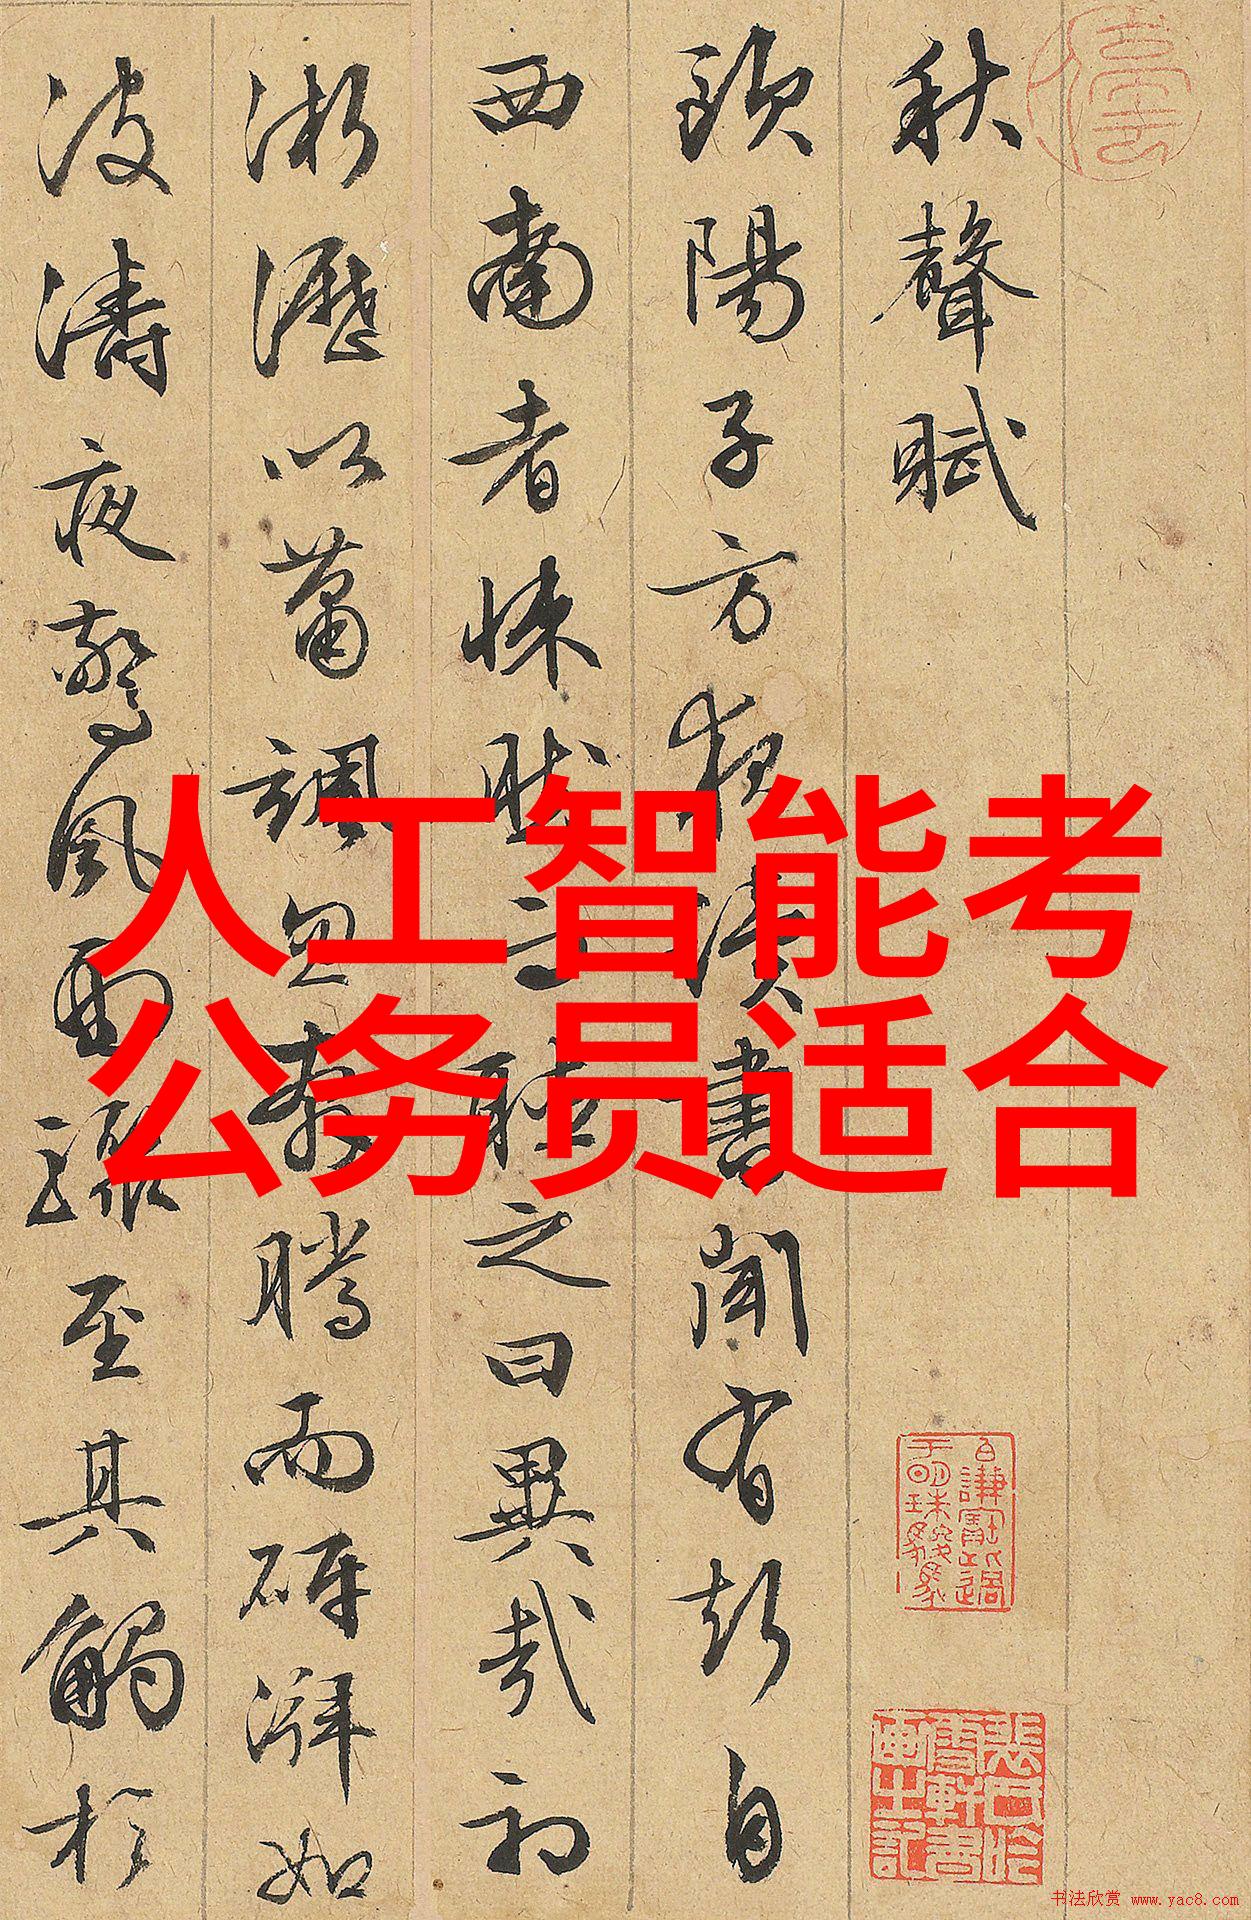 秋聲賦
歐陽子方夜讀書聞有聲自
西南者悚然而聽之曰異哉初
淅瀝以蕭颯忽奔騰而砰湃如
波濤夜驚風雨驟至其觸於
人工智能考
公务员适合
书法欣赏 www.yac8.com